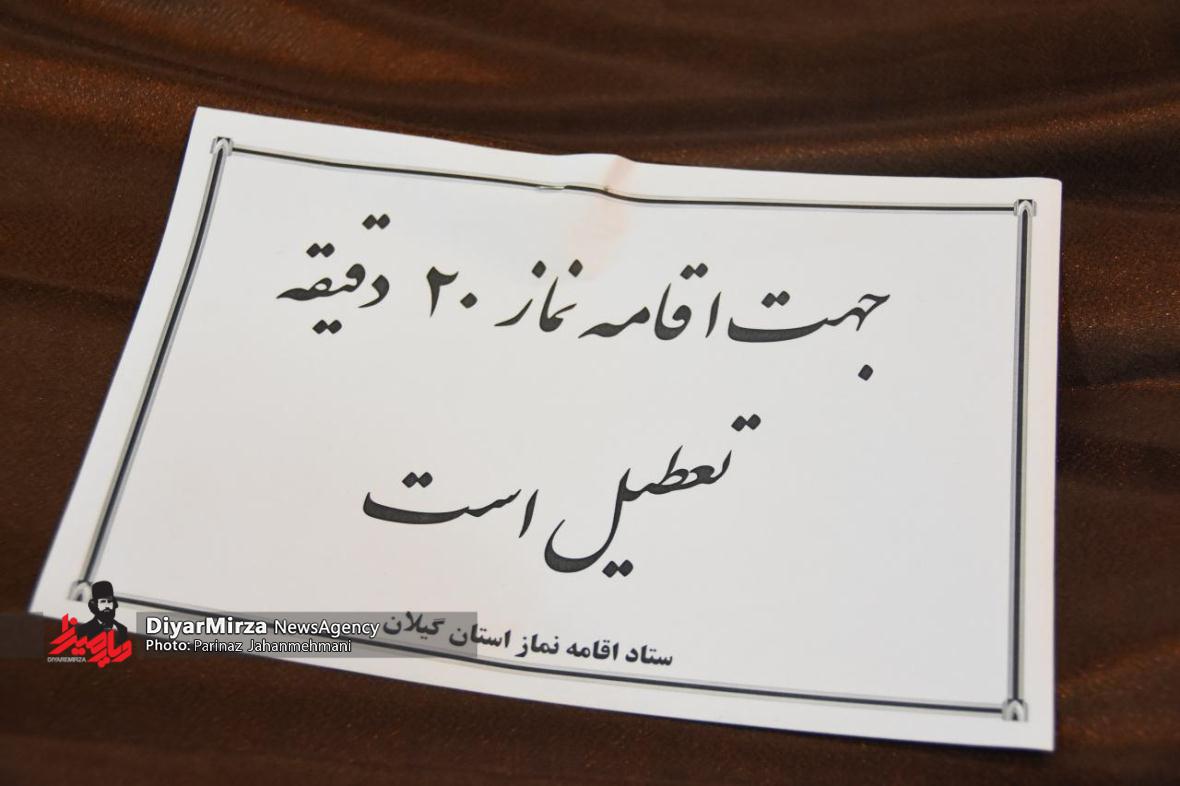 جهت اقامه نماز ۲۰ دقیقه
تعطیل است
ستاد اقامه نماز استان گیلان
دیارمیرزا
DIYAREMIRZA
DiyarMirza NewsAgency
Photo: Parinaz Jahanmehmani